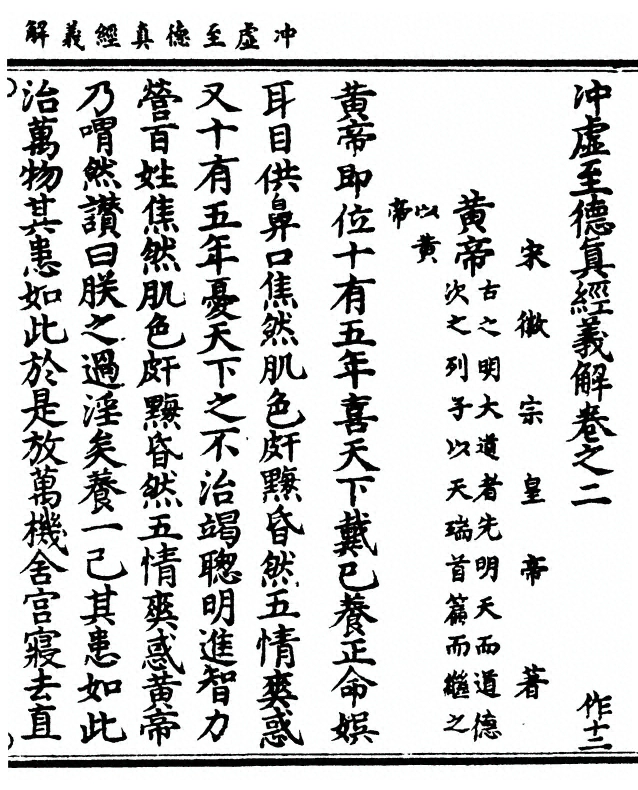 冲虛至德真經義解
冲虛至德真經義解卷之二 作十二
宋徽宗皇帝著
黄帝
古之明大道者先明天而道德
次之列子以天瑞首篇而繼之
以黄
帝
黄帝即位十有五年喜天下戴已養正命娯
耳目供鼻口焦然肌色皯黣昏然五情爽惑
又十有五年憂天下之不治竭聰明進智力
營百姓焦然肌色皯黣昏然五情爽惑黄帝
乃喟然讃曰朕之過淫矣養一己其患如此
治萬物其患如此於是放萬機舍宫寢去直